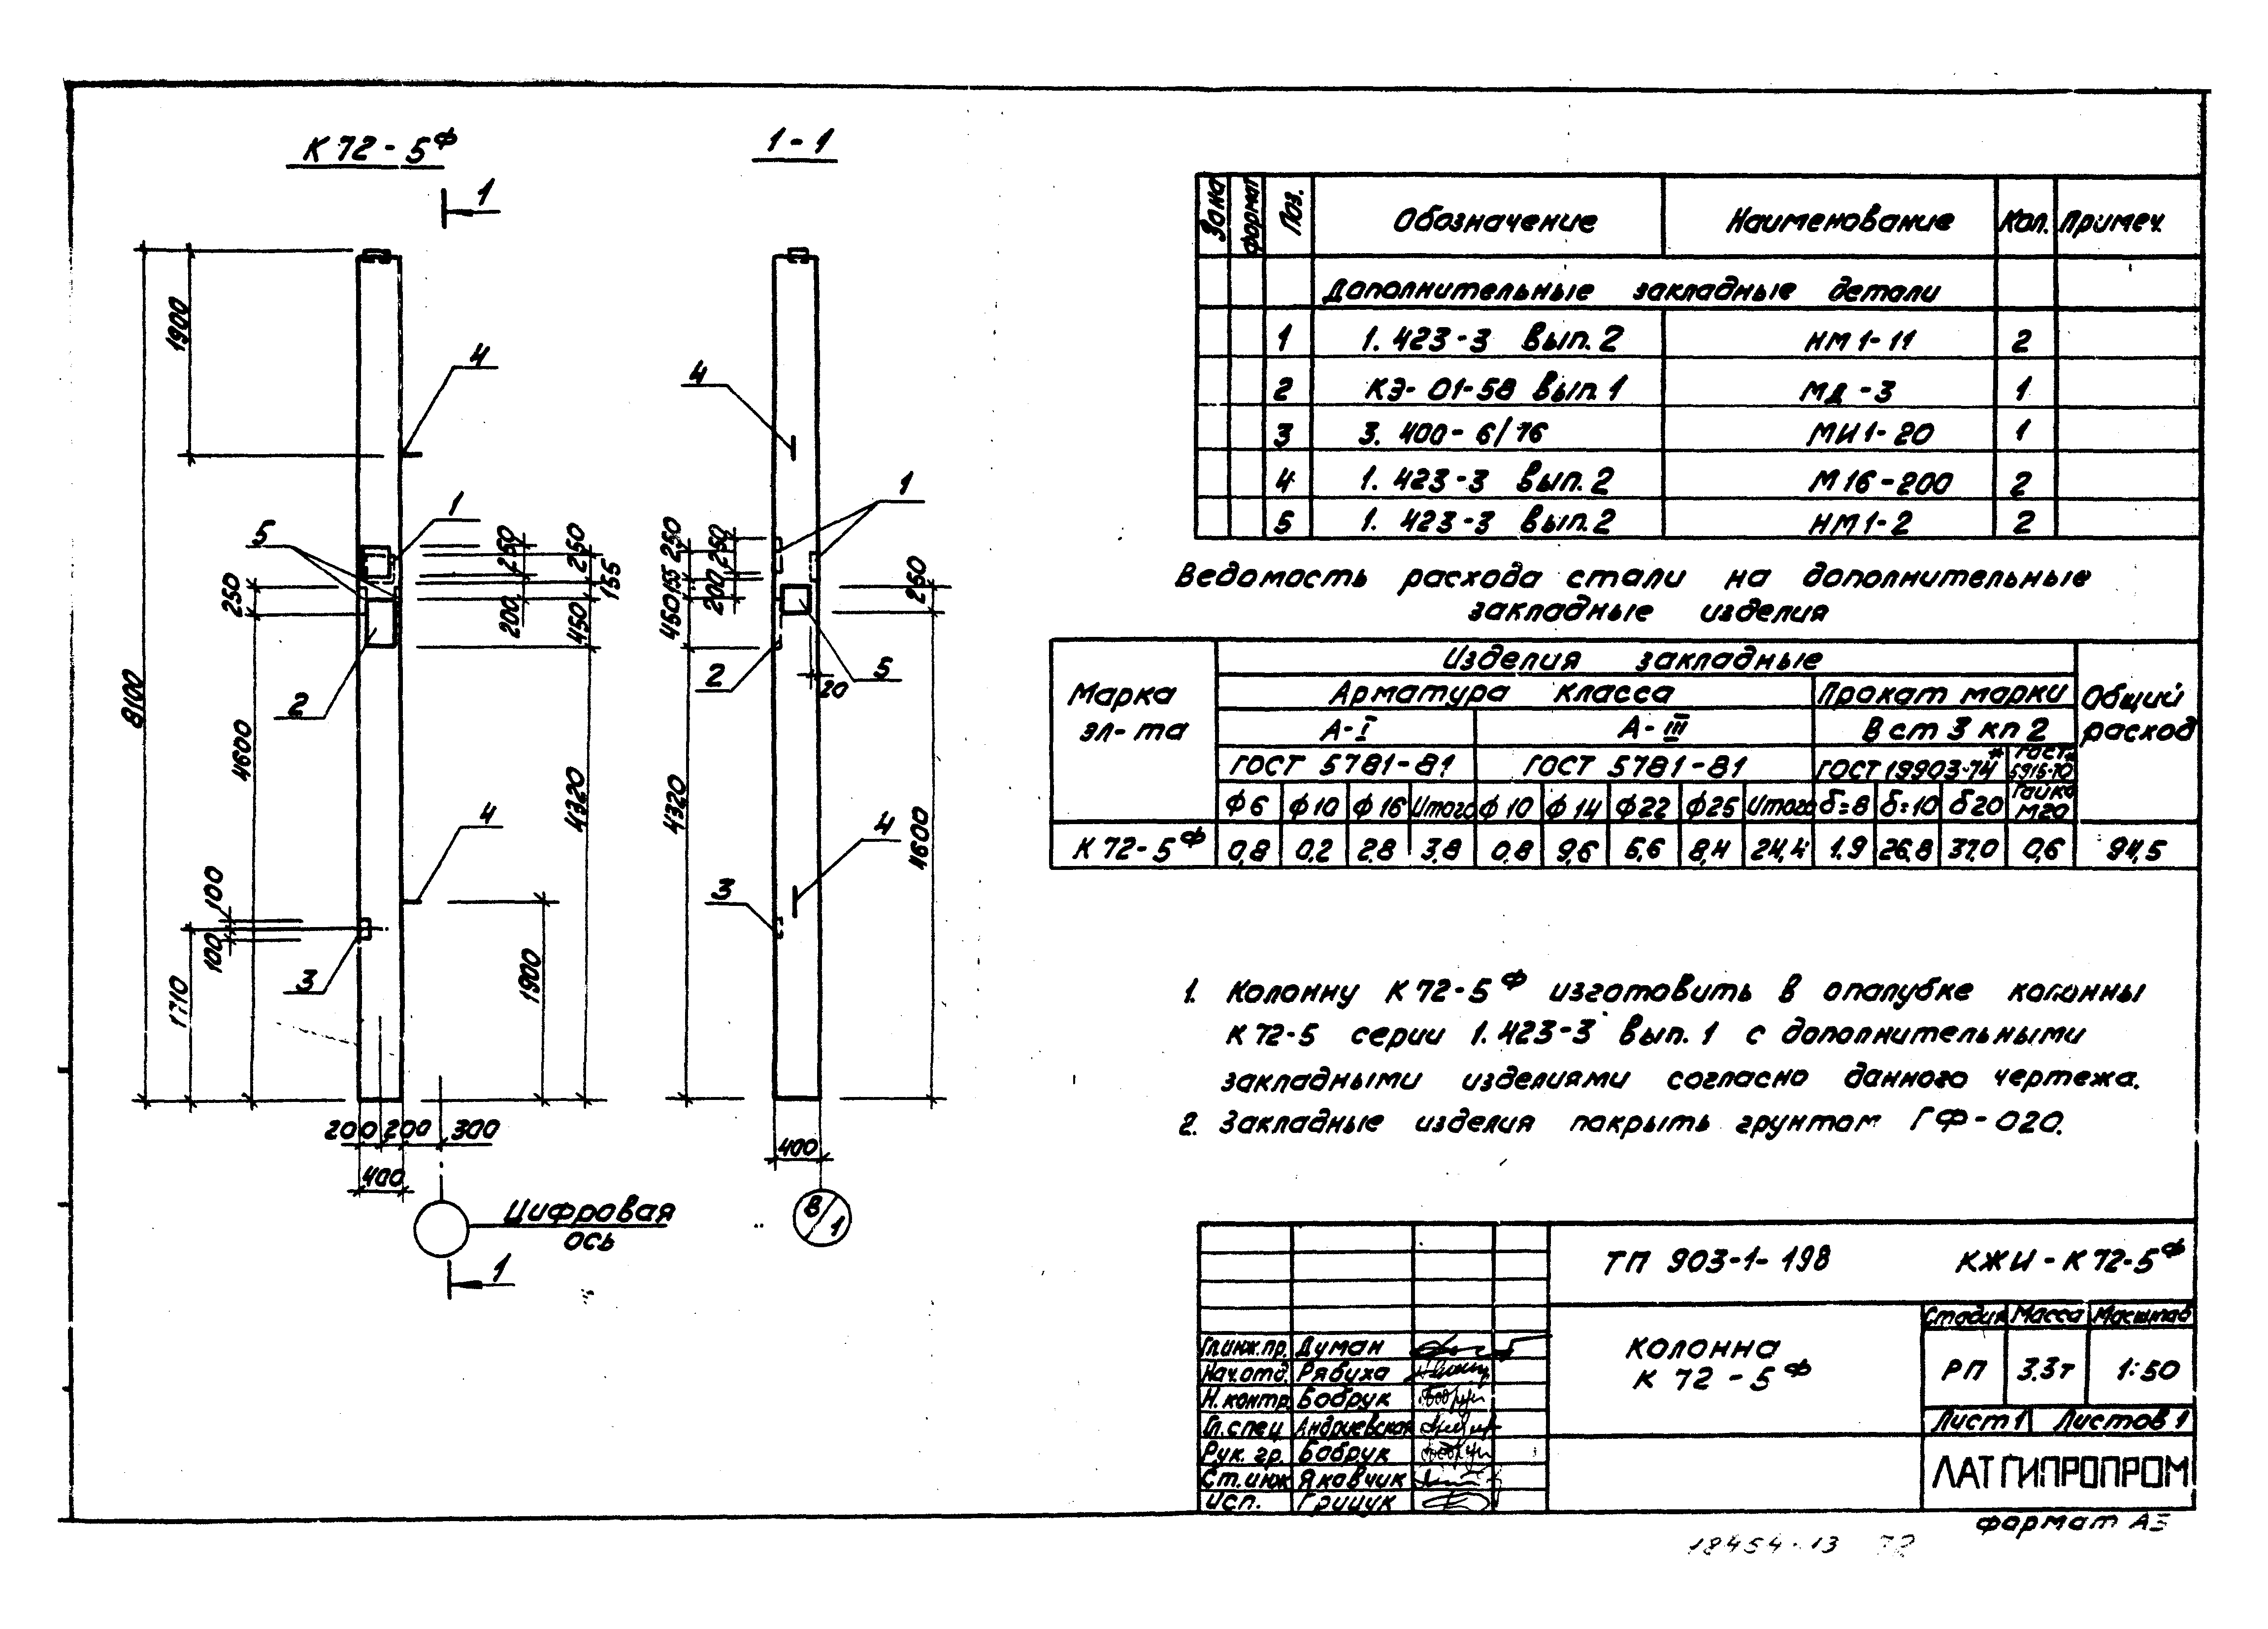 К 72 - 5ф
1 - 1
1
8100
1900
4
1
5
250
200
250
155
450
250
2
4600
4320
4
100
100
3
1710
1900
200 200 300
400
Цифровая
ось
1
4
1
250
155
450
250
200
250
2
5
20
4320
4600
4
3
400
В/1
Зона
Формат
Поз.
Обозначение
Наименование
Кол.
Примеч.
Дополнительные закладные детали
1 1. 423-3 вып. 2 НМ 1-11 2
2 КЭ-01-58 вып. 1 МД-3 1
3 3. 400-6/76 МИ 1-20 1
4 1. 423-3 вып. 2 М16-200 2
5 1. 423-3 вып. 2 НМ 1-2 2
Ведомость расхода стали на дополнительные
закладные изделия
Марка
эл-та
Изделия закладные
Общий
расход
Арматура класса
Прокат марки
А-I
А-III
В ст 3 кп 2
ГОСТ 5781-81 ГОСТ 5781-81 ГОСТ 19903-74* ГОСТ* 5915-70
Ф6 Ф10 Ф16 Итого Ф10 Ф14 Ф22 Ф25 Итого δ=8 δ=10 δ20 Гайка М20
К 72-5ф 0,8 0,2 2,8 3,8 0,8 9,6 5,6 8,4 24,4 1.9 26,8 37,0 0,6 94,5
1. Колонну К 72-5ф изготовить в опалубке колонны
К 72-5 серии 1. 423-3 вып. 1 с дополнительными
закладными изделиями согласно данного чертежа.
2. Закладные изделия покрыть грунтом ГФ-020.
ТП 903-1-198 КЖИ-К 72-5ф
Колонна
К 72-5ф
Стадия Масса Масштаб
РП 3.3т 1:50
Лист 1 Листов 1
ЛАТГИПРОПРОМ
Гл.инж.пр. Думан
Нач.отд. Рябуха
Н. контр. Бобрук
Гл. спец Андриевская
Рук. гр. Бобрук
Ст.инж Якавчик
Исп. Грицук
формат А3
18454-13 72